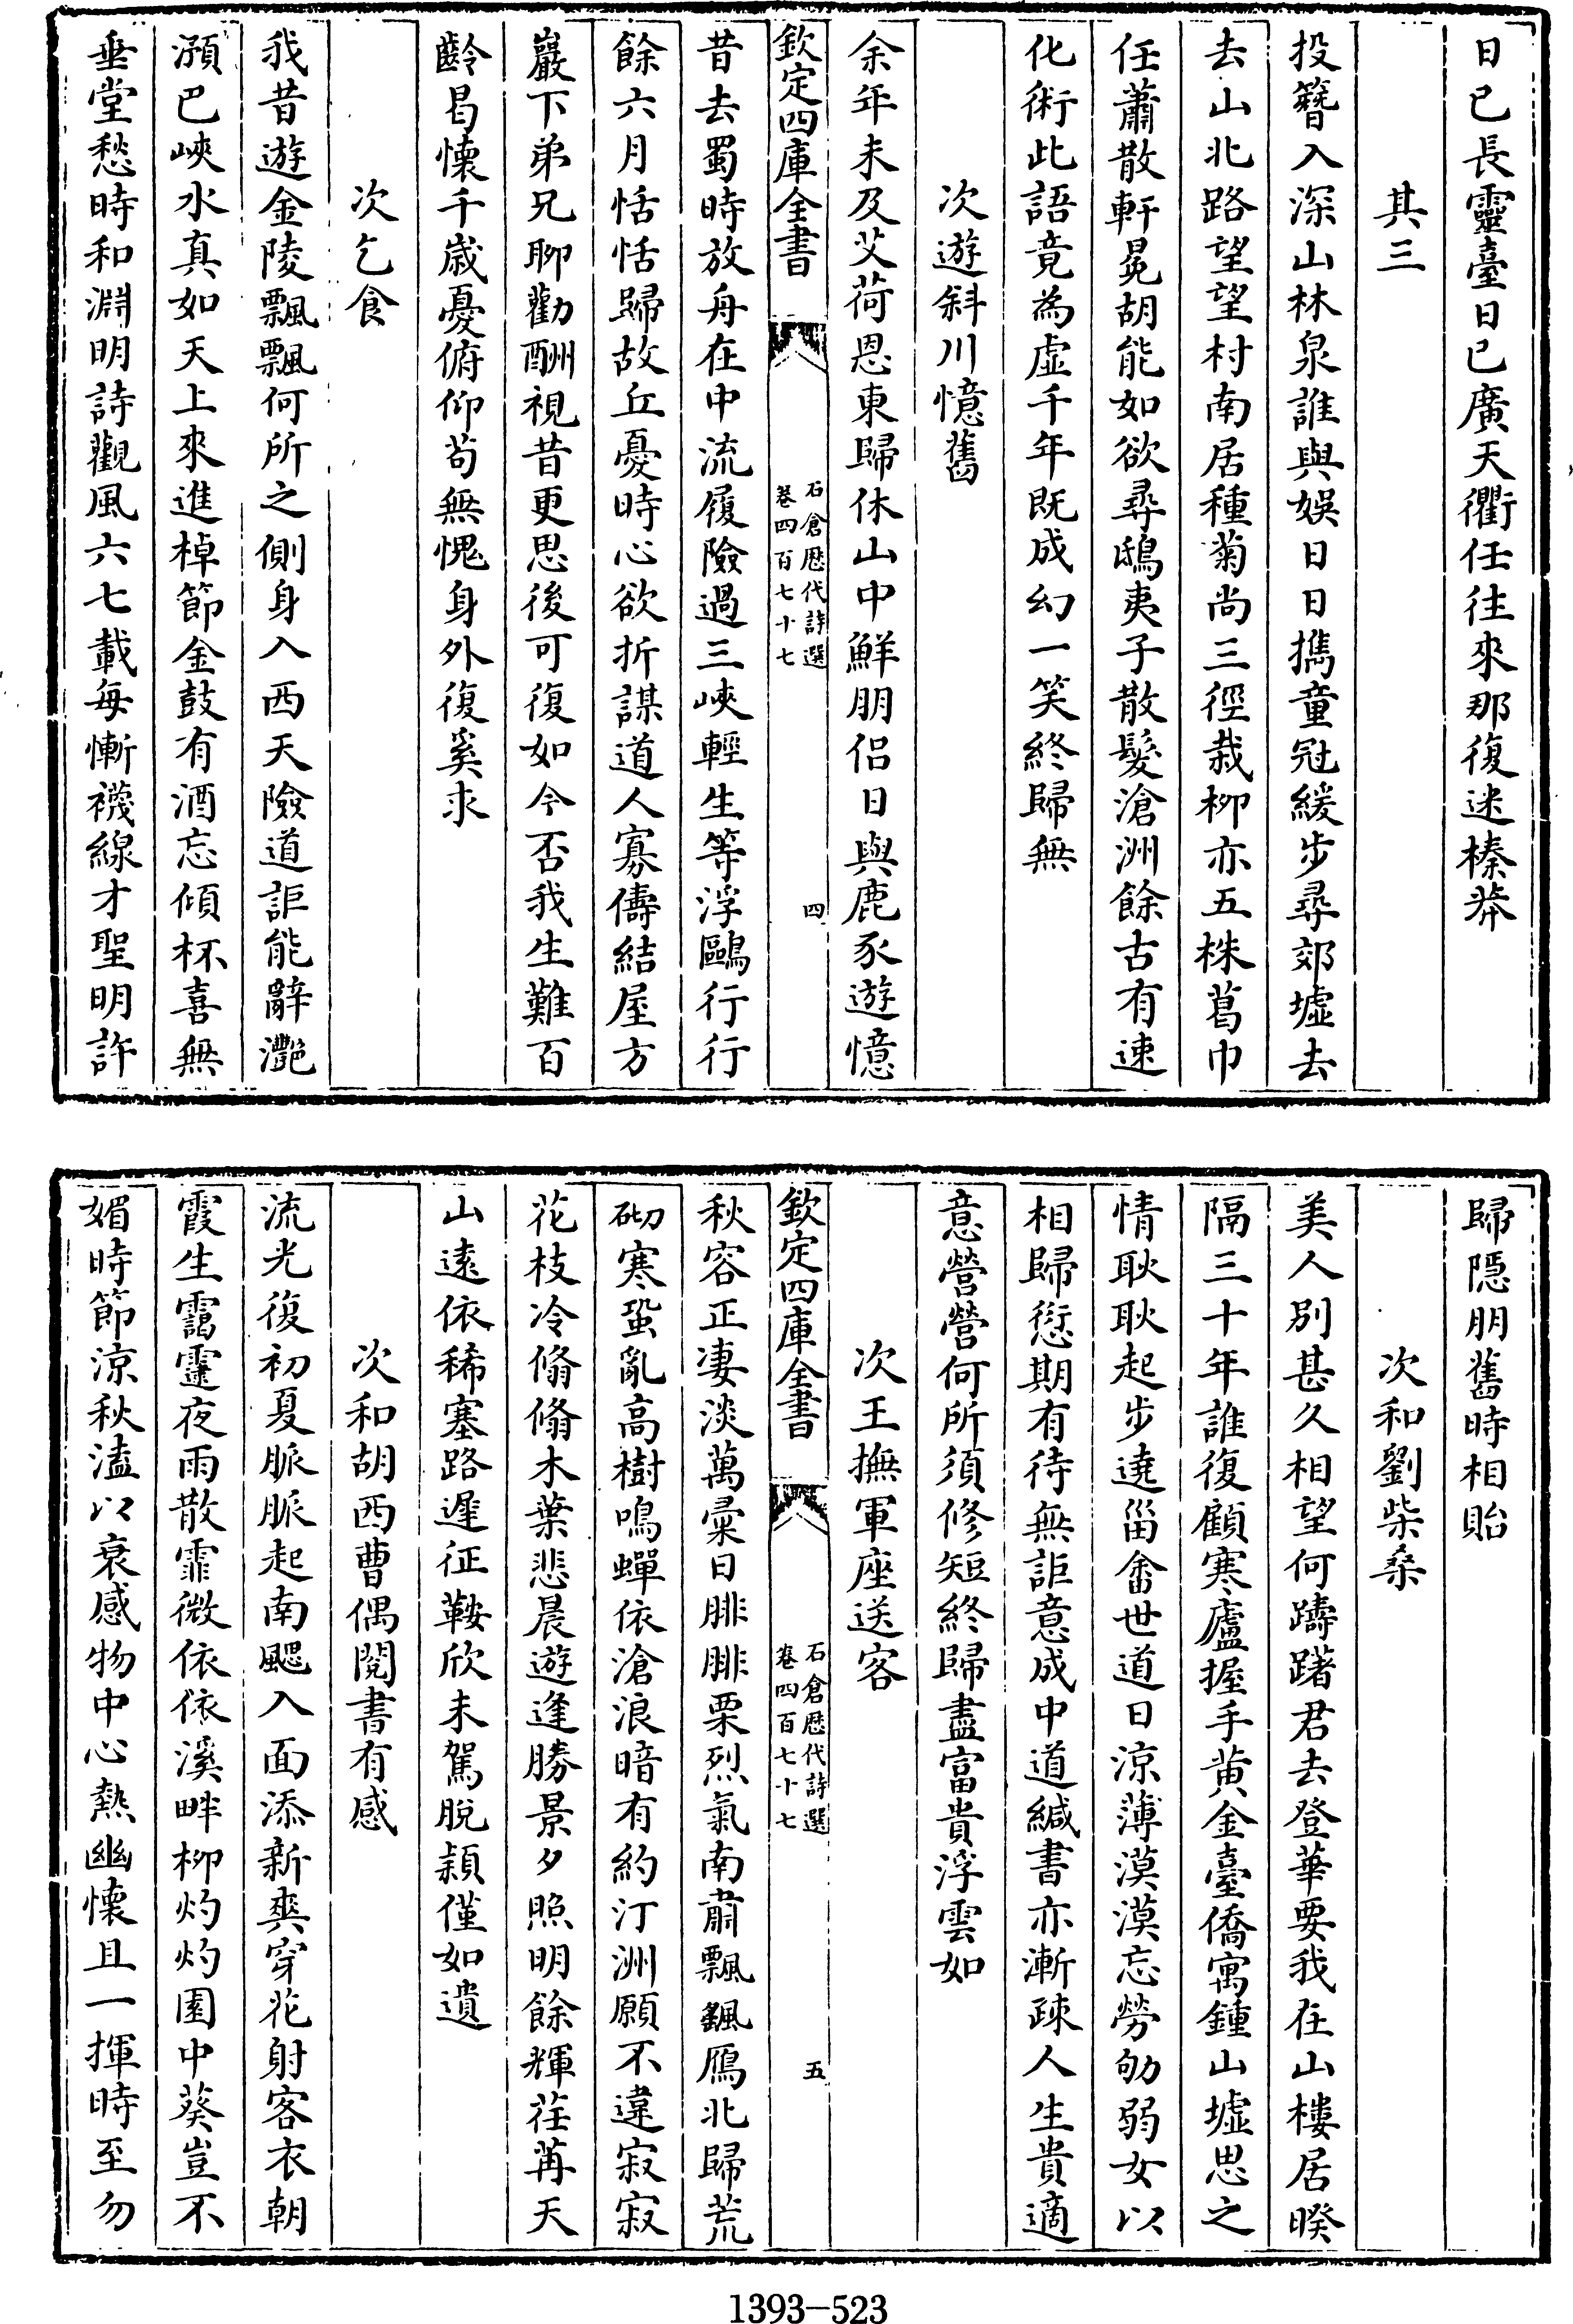 日已長靈臺日已廣天衢任往來那復迷榛莽
其三
投簪入深山林泉誰與娛日日攜童冠緩步尋郊墟去
去山北路望望村南居種菊尚三徑栽柳亦五株葛巾
任蕭散軒冕胡能如欲尋鴟夷子散髮滄洲餘古有速
化術此語竟為虛千年既成幻一笑終歸無
次遊斜川憶舊
余年未及艾荷恩東歸休山中鮮朋侣日與鹿豕遊憶
欽定四庫全書
石倉歴代詩選
卷四百七十七
四
昔去蜀時放舟在中流履險過三峽輕生等浮鷗行行
餘六月恬恬歸故丘憂時心欲折謀道人寡儔結屋方
巖下弟兄聊勸酬視昔更思後可復如今否我生難百
齡曷懷千歳憂俯仰茍無愧身外復奚求
次乞食
我昔遊金陵飄飄何所之側身入西天險道詎能辭灧
澦巴峽水真如天上來進棹節金鼓有酒忘傾杯喜無
垂堂愁時和淵明詩觀風六七載每慚襪線才聖明許
歸隠朋舊時相貽
次和劉柴桑
美人別甚久相望何躊躇君去登華要我在山樓居暌
隔三十年誰復顧寒廬握手黄金臺僑寓鍾山墟思之
情耿耿起步遶甾畬世道日涼薄漠漠忘勞劬弱女以
相歸愆期有待無詎意成中道緘書亦漸疎人生貴適
意營營何所須修短終歸盡富貴浮雲如
次王撫軍座送客
欽定四庫全書
石倉歴代詩選
卷四百七十七
五
秋容正凄淡萬彚日腓腓栗烈氣南肅飄飖鴈北歸荒
砌寒蛩亂高樹鳴蟬依滄浪暗有約汀洲願不違寂寂
花枝冷翛翛木葉悲晨遊逢勝景夕照明餘輝荏苒天
山遠依稀塞路遲征鞍欣未駕脫穎僅如遺
次和胡西曹偶閱書有感
流光復初夏脈脈起南颸入面添新爽穿花射客衣朝
霞生靄靆夜雨散霏微依依溪畔柳灼灼園中葵豈不
媚時節涼秋溘以衰感物中心熱幽懷且一揮時至勿
1393—523